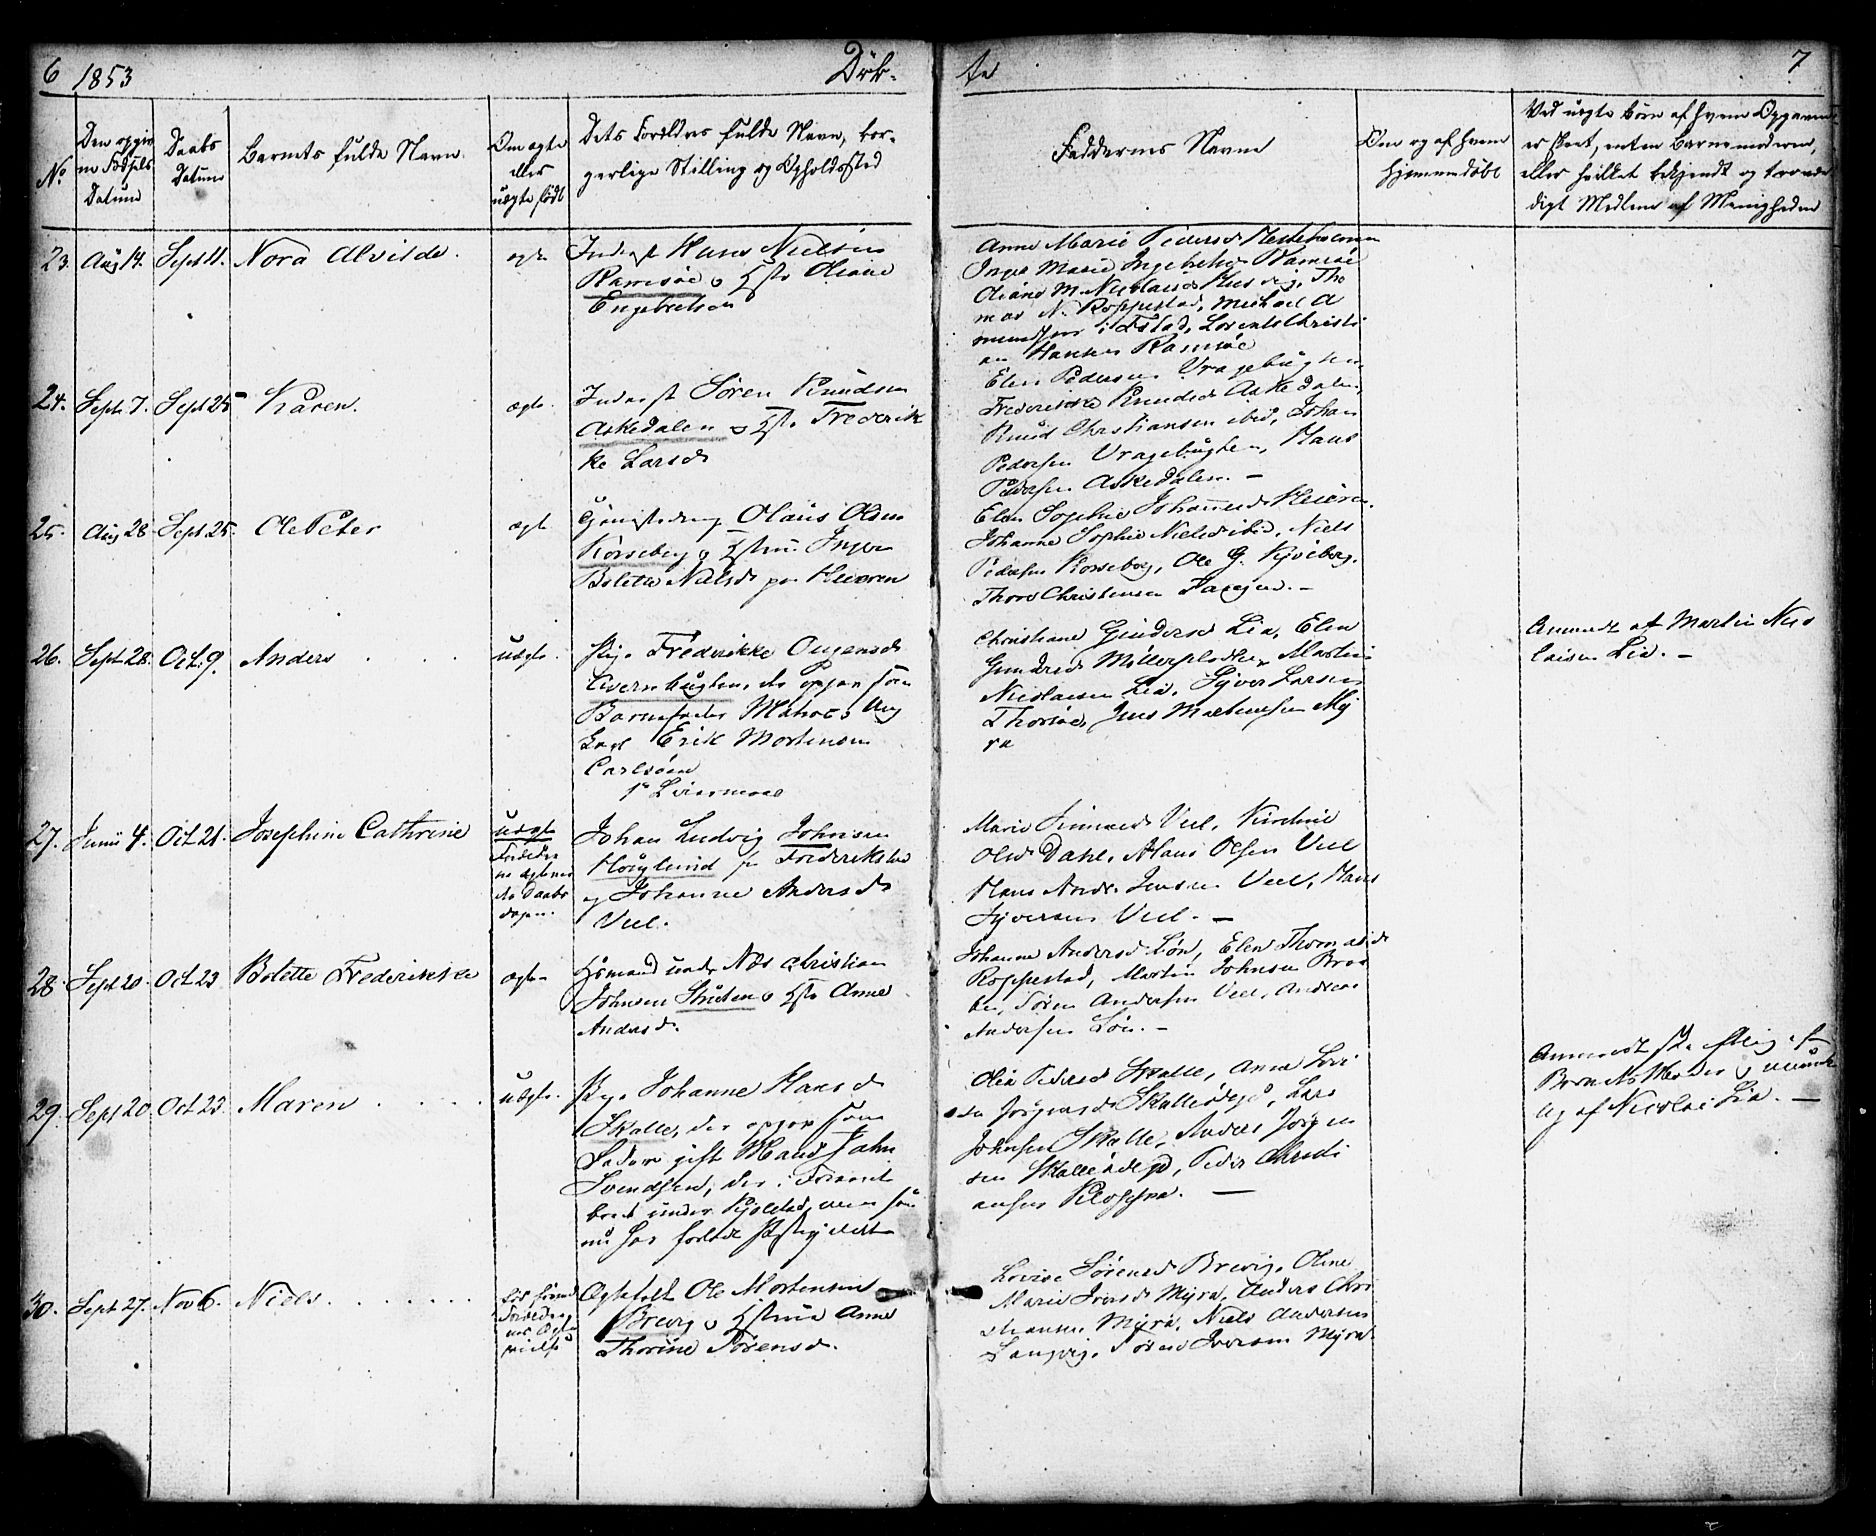 6 1853 Döb-
te 7
No
Den opgiv
ne Fødsels
Datum
Daabs
Datum
Barnets fulde Navn.
Om ægte
eller
uægte født
Dets Forældres fulde Navn, bor-
gerlige Stilling og Opholdssted
Faddernes Navne
Om og af hvem
hjemmedøbt
Ved uægte Børn af hvem Opgaven
er skeet, enten Barnemoderen,
eller hvilket bekjendt og trovær
digt Medlem af Menigheden
23. Aug 14. Sept 11. Nora Alvilde.
ægte
Inderst Hans Nielsen
Ramsöe o Hstr Oliane
Engebretsen
Anne Marie Pedersd Hesteholmen
Inger Marie Ingebretsen Ramsöe
Oliane M. Nicolaisd Huser, Tho
mas N. Roppestad, Michael A
mundsen i Fstad, Lorents Christi
an Hansen Ramsöe
24. Sept. 7. Sept 25 Karen.
ægte.
Inderst Sören Knudsen
Askedalen o Hstr Frederik
ke Larsd
Elen Pedersen Vragebugten
Frederikke Knudsd Askedalen,
Knud Christiansen ibid, Johan
Pedersen Vragebugten, Hans
Pedersen Askedalen. —
25. Aug 28. Sept 25. Ole Peter
ægte
Olaus Olsen
Korseberg o Hstru Inger
Bolette Nielsd paa Heieren
Elen Sophie Johannesd Heieren.
Johanne Sophie Nielsd ibid, Niels
Pedersen Korseberg, Ole G. Kjöeberg.
Thore Christensen Tangen. —
26. Sept 28. Oct. 9. Anders . . .
uægte.
Pige Frederikke Ougensd
Evernbugten, der opgav som
Barnefader Matros Ung
Karl Erik Mortensen
Carlsöen
Christiane Gundersd Lia, Elen
Gundersd Möllerpladsen, Martin
Nicolaisen Lia, Syver Larsen
Thorsöe, Jens Mathiesen My
ra
Anmeldt af Martin Nico
laisen Lia. —
27. Junii 4. Oct. 21. Josephine Cathrine
uægte
Forældre
ne ægtevied
de Daabs
dagen.
Johan Ludvig Johnsen
Höuglund fra Frederikstad
og Johanne Andersd
Veel.
Marie Simensd Veel, Kirstine
Olsd Dahl, Hans Olsen Veel
Hans Andr. Jensen Veel, Hans
Syversen Veel. —
28. Sept 20. Oct. 23 Bolette Frederikke
ægte
Husmand under Næs Christian
Johnsen Struten o Hstr Anne
Andersd.
Johanne Andersd Lön, Elen Thomasd
Roppestad, Martin Johnsen Braa
ten, Sören Andersen Veel, Andreas
Andersen Lön. —
29. Sept 20. Oct 23. Maren . . . .
uægte.
Pige Johanne Hansd
Skalle, der opgav som
Fader gift Mand John
Svendsen, der i Foraaret
boede under Kjölstad, men som
nu har forladt Præstegjeldet
Olia Pedersd Skalle, Anne Lovi
se Jörgensd Skalleödegd, Lars
Johnsen Skalle, Anders Jörgen
sen Skalleödegd, Peder Christi
ansen Kloppa. —
Anmeldt skriftlig af
Barnets Moder o mundt
lig af Nicolai Lia. —
30. Sept 27. Nov 6. Niels . . . . . .
Föd förend
Forældre
nes Ægte
vielse
Ægtefolk Ole Mortensen
Brevig o Hstrue Anne
Thorine Sörensd.
Lovise Sörensd Brevig, Oline
Marie Iversd Myra, Anders Chri
stiansen Myra, Niels Andersen
Langvig, Sören Iversen Myra